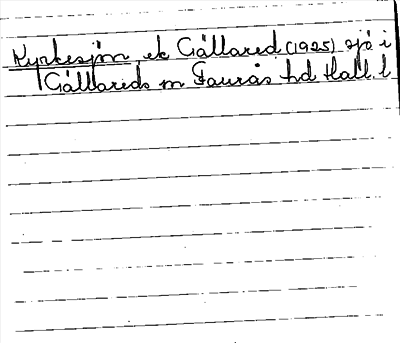 Kyrkesjön ek Gällared (1925) sjö i
Gällareds sn Faurås hd Hall. l